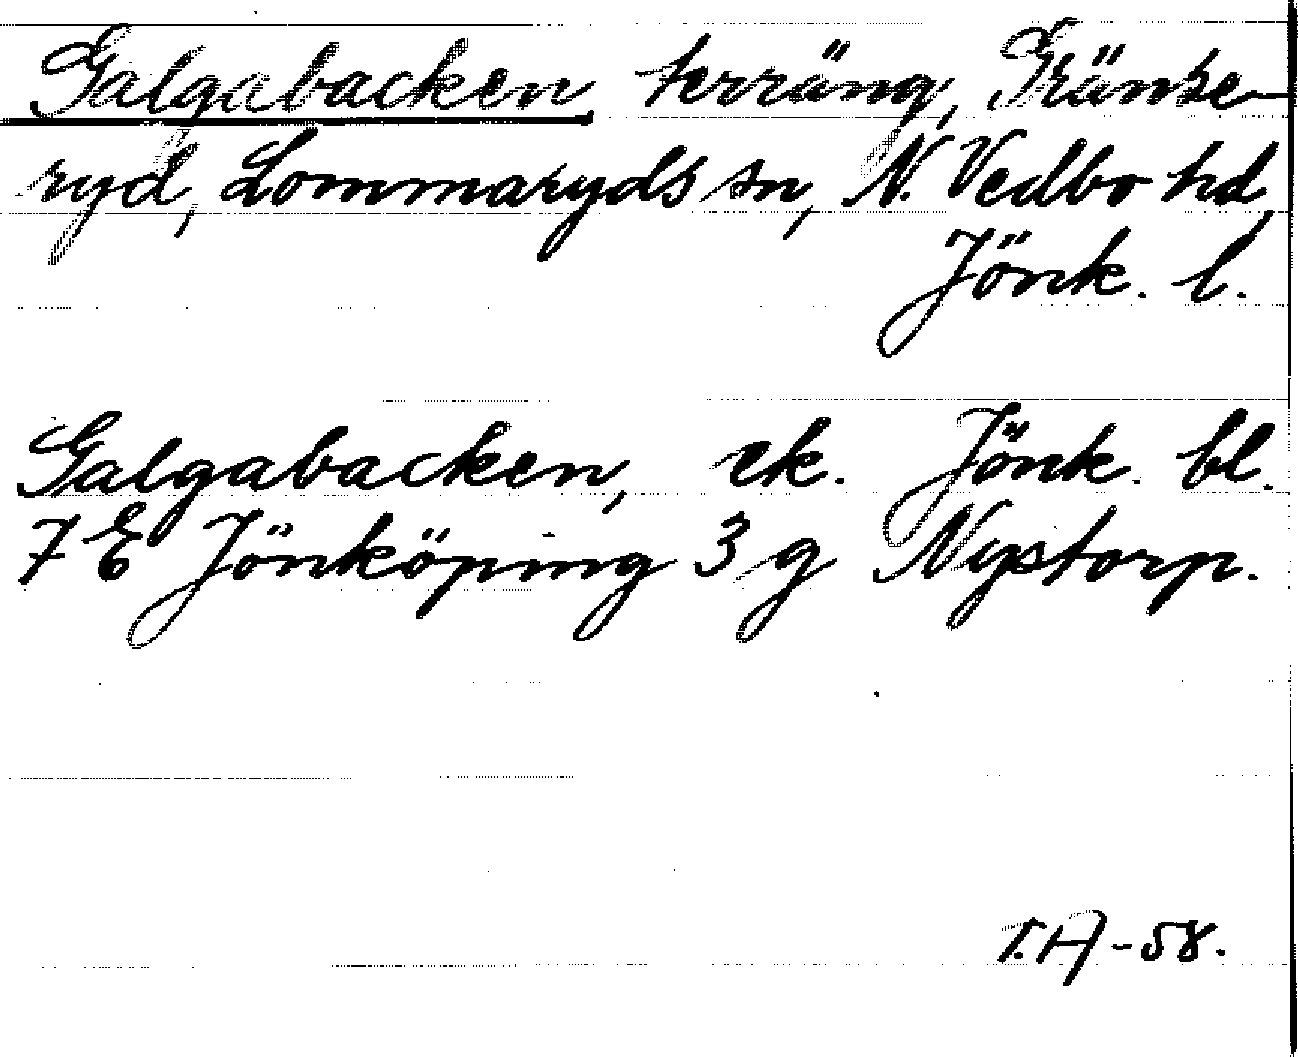 Galgabacken, terräng, Gränse-
ryd, Lommaryds sn, N. Vedbo hd,
Jönk. l.
Galgabacken, ek. Jönk. bl.
7 E Jönköping 3 g Nystorp.
T.A -58.